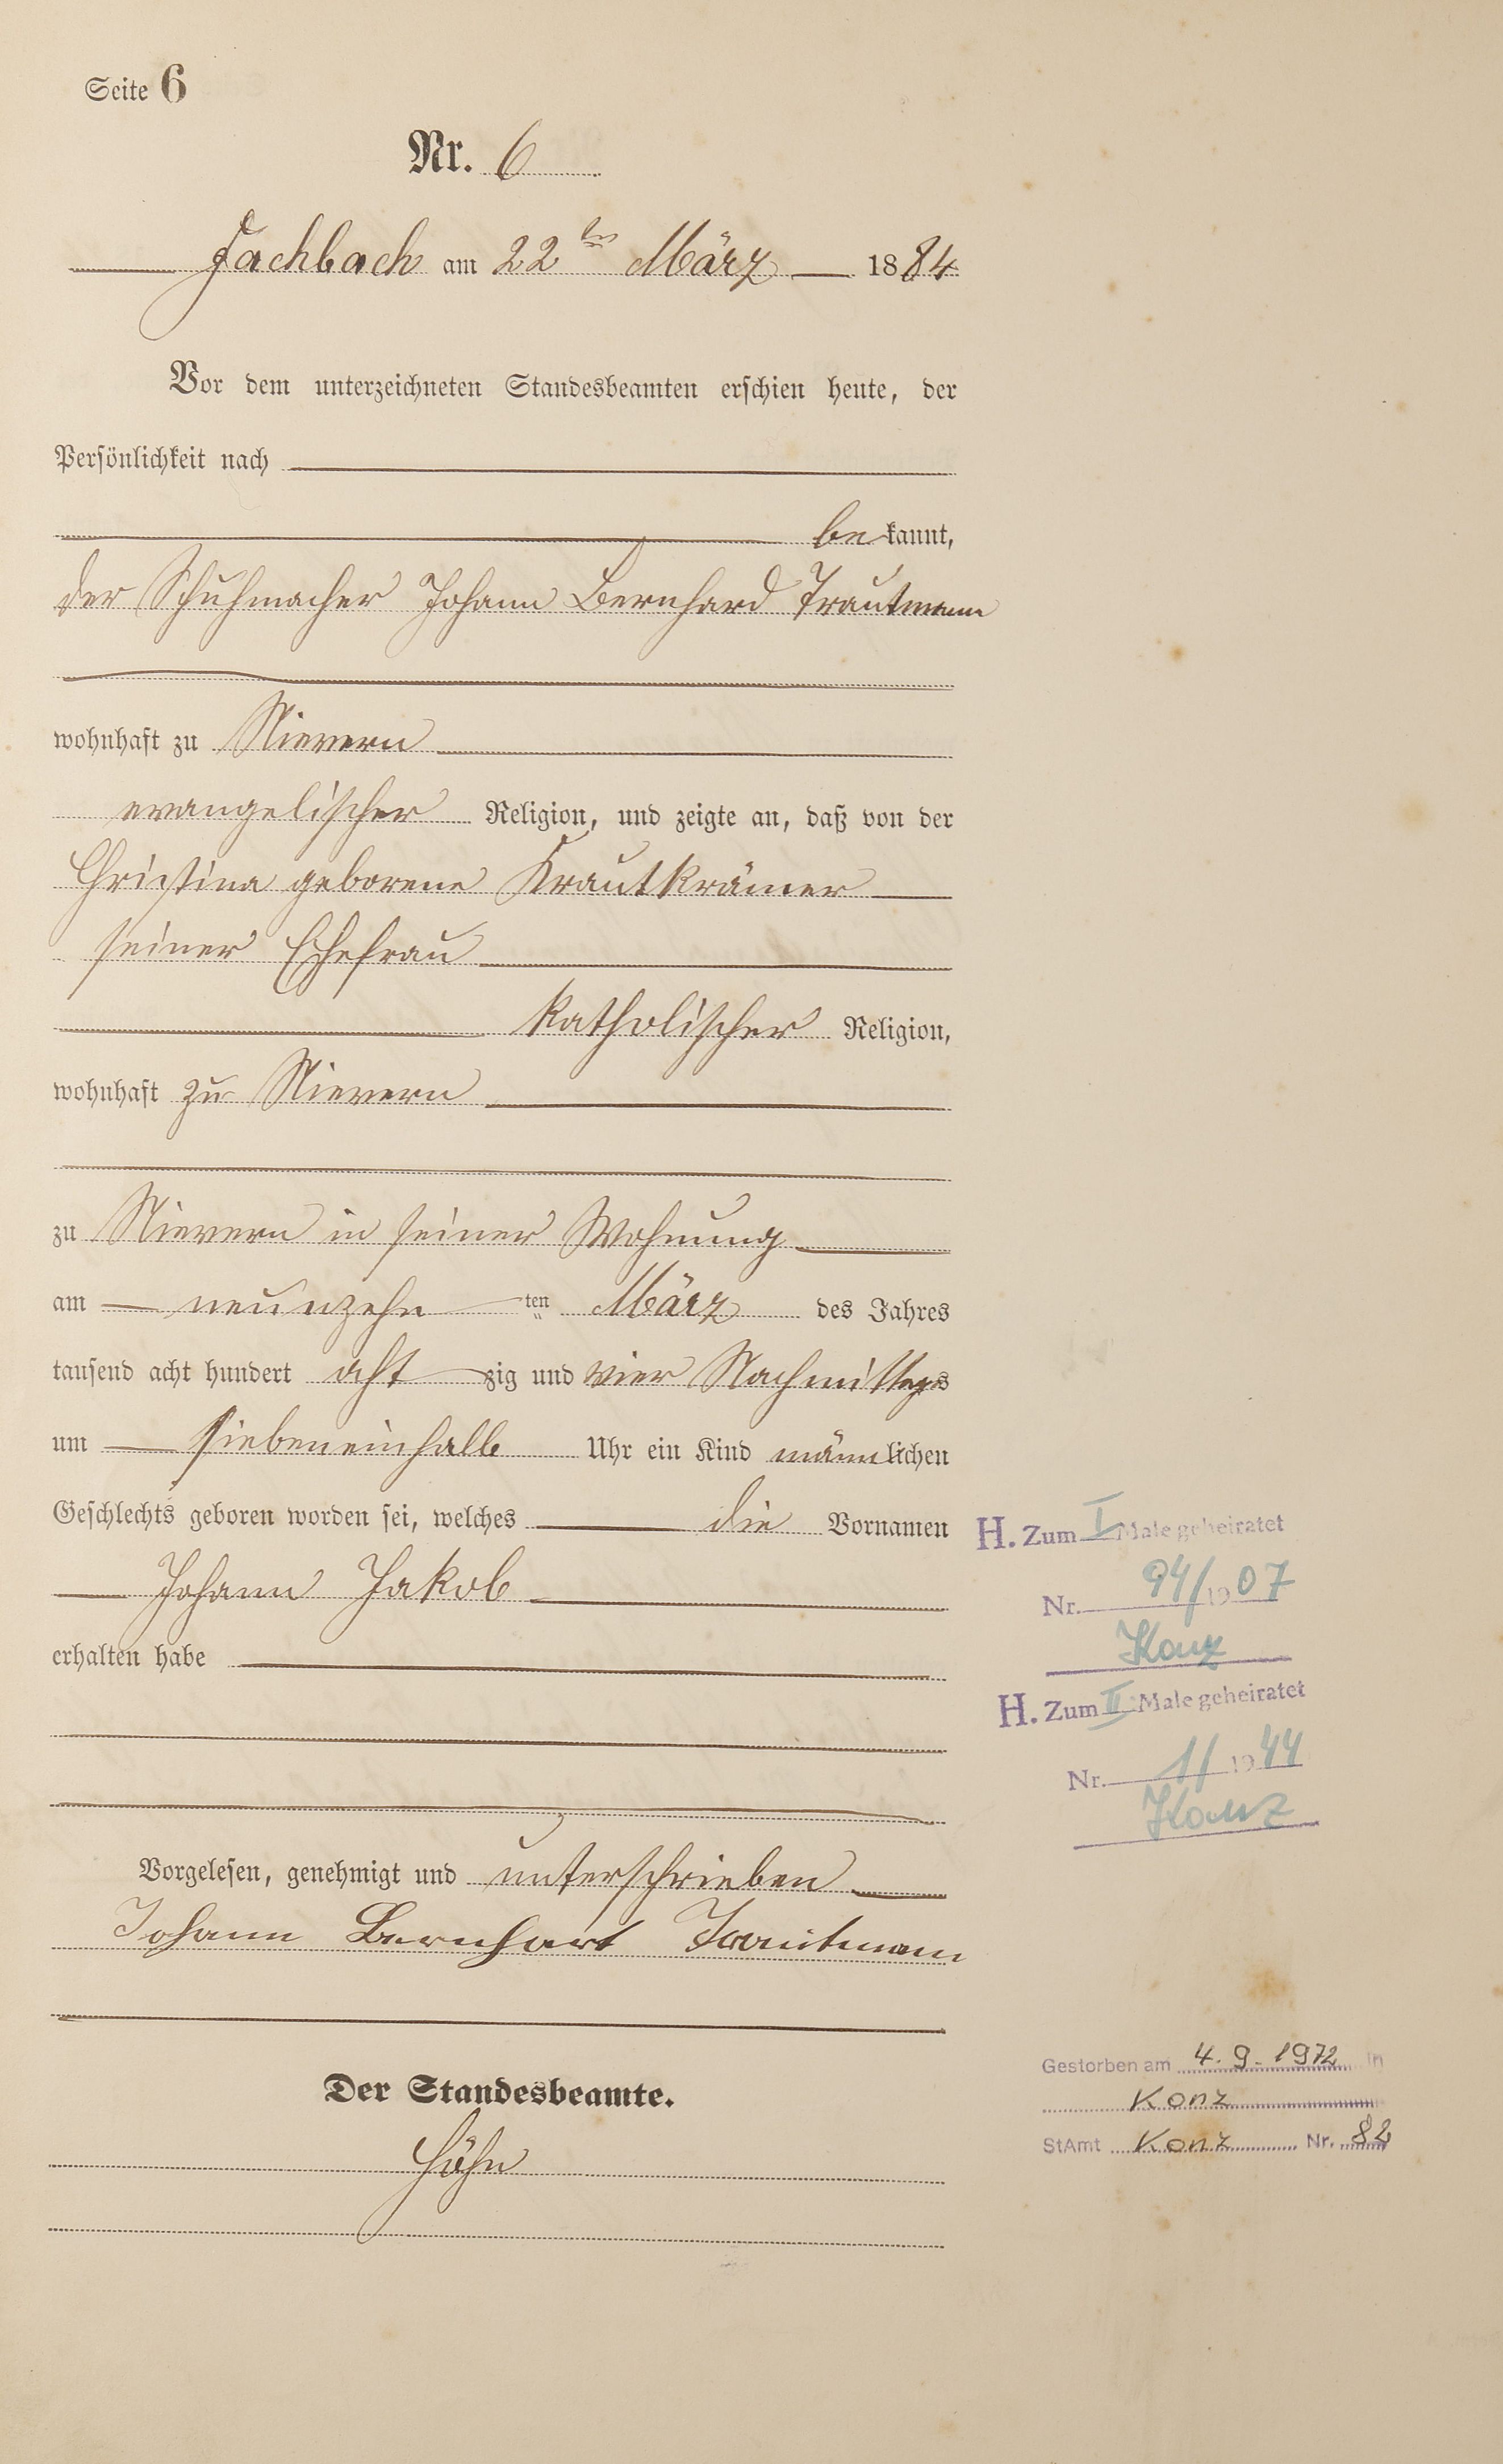 Seite 6
Nr. 6
Fachbach am 22ten März 1884
Vor dem unterzeichneten Standesbeamten erschien heute, der
Persönlichkeit nach
bekannt,
der Schuhmacher Johann Bernhard Trautmann
wohnhaft zu Nievern
evangelischer Religion, und zeigte an, daß von der
Christina geborene Krautkrämer
seiner Ehefrau
katholischer Religion,
wohnhaft zu Nievern
zu Nievern in seiner Wohnung
am neunzehn ten März des Jahres
tausend acht hundert acht zig und vier Nachmittags
um siebeneinhalb Uhr ein Kind männlichen
Geschlechts geboren worden sei, welches die Vornamen
Johann Jakob
erhalten habe
Vorgelesen, genehmigt und unterschrieben
Johann Bernhart Trautmann
Der Standesbeamte.
Höhn
H. Zum I Male geheiratet
Nr. 94/1907
Konz
H. Zum II Male geheiratet
Nr. 1/1944
Konz
Gestorben am 4.9.1972 in
Konz
StAmt Konz Nr. 82